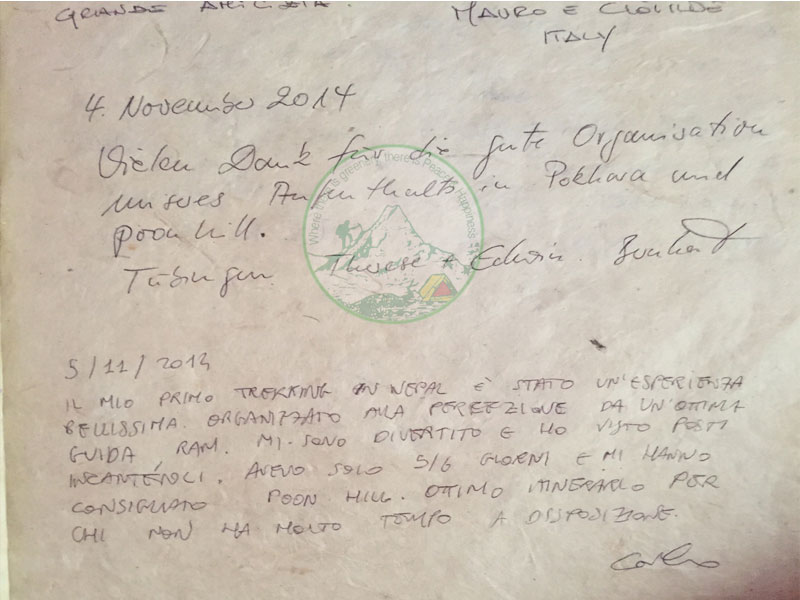 GRANDE AMICIZIA.
MAURO E CLOTILDE
ITALY
4. November 2014
Vielen Dank für die gute Organisation
unseres Aufenthalts in Pokhara und
poon hill.
Tübingen Therese + Edwin
Where there is green there is Peace Happiness
5/11/2014
IL MIO PRIMO TREKKING IN NEPAL È STATO UN'ESPERIENZA
BELLISSIMA. ORGANIZZATO ALLA PERFEZIONE DA UN'OTTIMA
GUIDA RAM. MI SONO DIVERTITO E HO VISTO POSTI
INCANTEVOLI. AVEVO SOLO 5/6 GIORNI E MI HANNO
CONSIGLIATO POON HILL. OTTIMO ITINERARIO PER
CHI NON HA MOLTO TEMPO A DISPOSIZIONE.